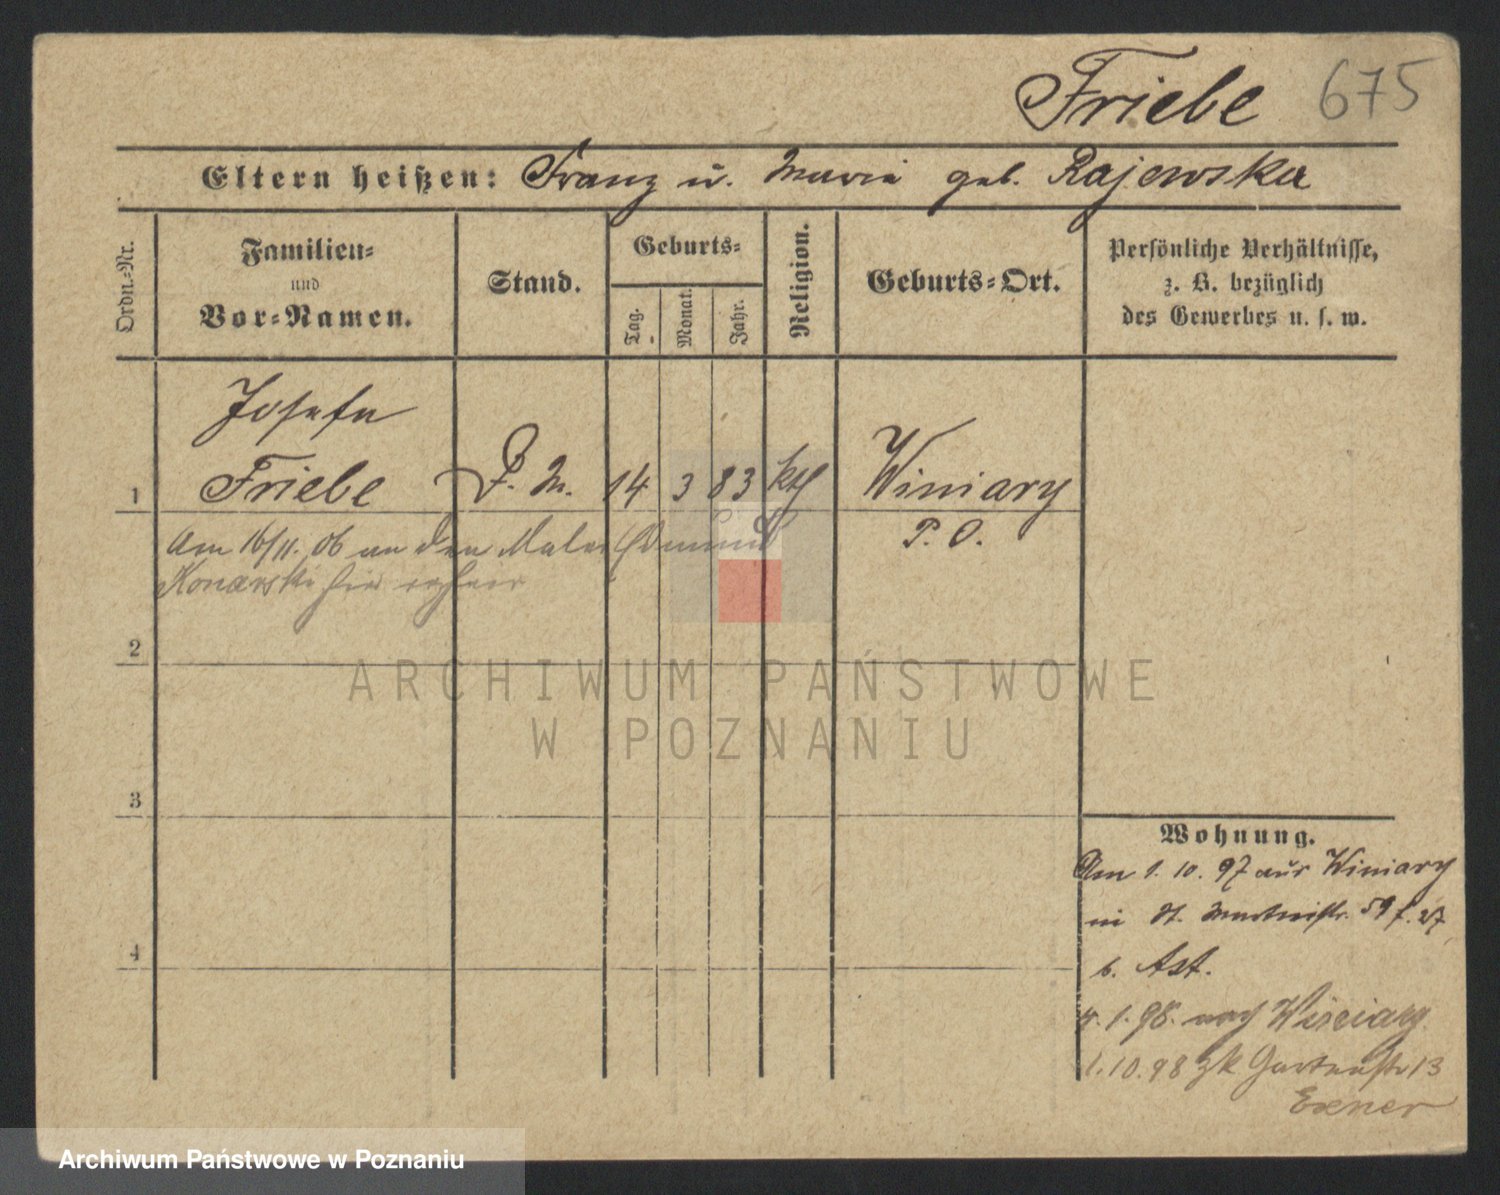 Friebe 675
Eltern heißen: Franz u. Maria geb. Rajewska
Ordn.-Nr.
Familien-
und
Vor-Namen.
Stand.
Geburts-
Tag.
Monat.
Jahr.
Religion.
Geburts-Ort.
Persönliche Verhältnisse,
z. B. bezüglich
des Gewerbes u. s. w.
Josefa
1 Friebe D. M. 14 3 83 kth Winiary
P. O.
Am 16/11. 06 an den Maler Edmund
Konarski hier
2
3
4
ARCHIWUM PAŃSTWOWE
W POZNANIU
Wohnung.
Am 1. 10. 97 aus Winiary
in St. Martinstr. 59 f. 27
b. Ast.
4. 1. 98. nach Winiary
1. 10. 98 zk Gartenstr 13
Exner
Archiwum Państwowe w Poznaniu